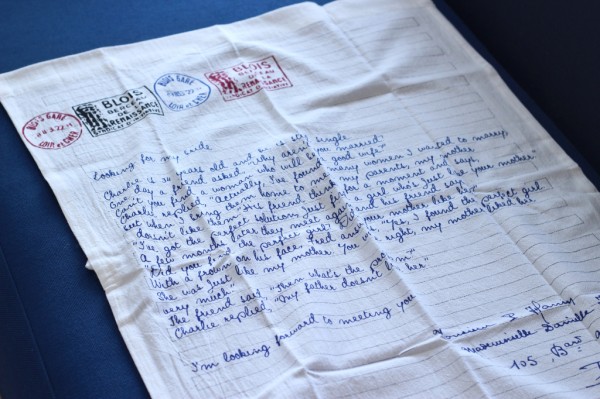 BLOIS GARE
LOIR ET CHER
BLOIS
BERCEAU
DE LA
RENAISSANCE
BLOIS GARE
LOIR ET CHER
BLOIS
BERCEAU
DE LA
RENAISSANCE
Looking for my
Charlie is years old and single
One day a friend asked "Why aren't you married
Can't you find a woman who will be a good wife"
Charlie replied "Actually I've found many women I wanted to marry
but when I bring them home to my parents, my mother
doesn't like them." His friend thinks for a moment and says
"I've got the perfect solution, just find who's just like your mother"
A few months later they met again and his friend says
"Did you find the perfect girl? your mother like her"
With a frown on his face, Fred "Yes, I found the perfect girl
She was just like my mother. You right, my mother liked her
very much"
The friend said "Then what's the
Charlie replied, "My father doesn't her"
I'm looking forward to meeting you
Mademoiselle
105